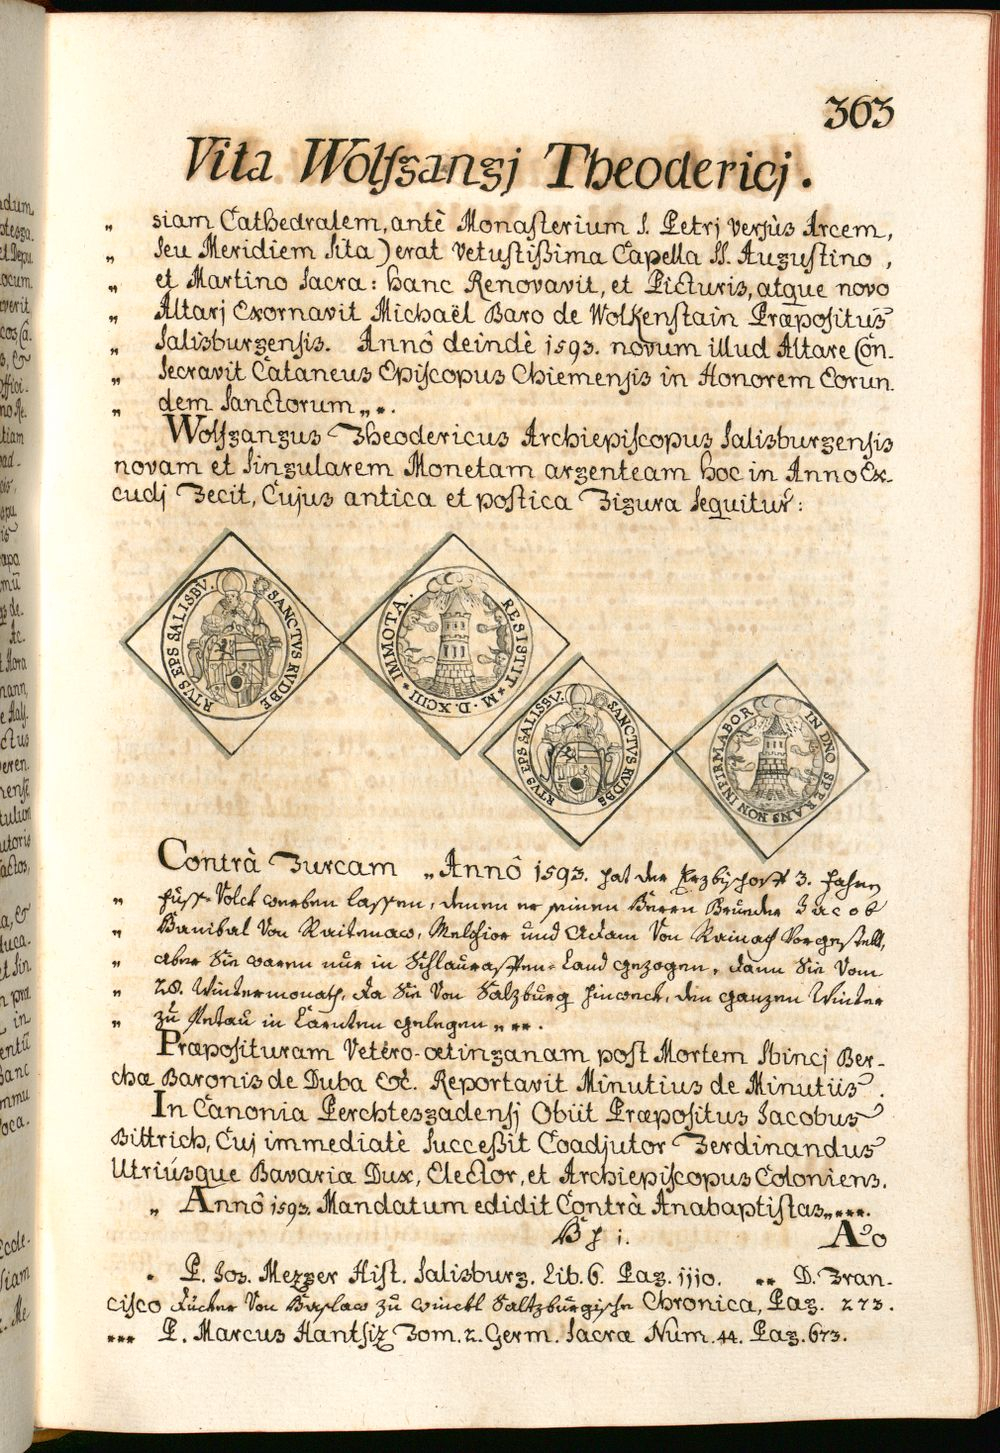 363
Vita Wolfgangj Theodericj.
„ siam Cathedralem, antè Monasterium S. Petrj versùs Arcem,
„ seu Meridiem sita) erat Vetustißima Capella SS. Augustino,
„ et Martino Sacra: hanc Renovavit, et Picturis, atque novo
„ Altarj Exornavit Michaël Baro de Wolkenstain Præpositus
„ Salisburgensis. Annô deindè 1593. novum illud Altare Con-
„ secravit Cataneus Episcopus Chiemensis in Honorem Eorun
„ dem Sanctorum „ *.
Wolfgangus Theodericus Archiepiscopus Salisburgensis
novam et singularem Monetam argenteam hoc in Anno Ex-
cudj Fecit, Cujus antica et postica Figura sequitur:
SANCTVS RVDBE RTVS EPS SALISBV.
IMMOTA. RESISTIT * M.D.XCIII *
SANCTVS RVDBE RTVS EPS SALISBV.
IN DNO SPERANS NON INFIRMABOR
Contrà Turcam „Annô 1593. hat der Erzbischoff 3. Fahnen
„ fuss-Volck werben lassen, denen er seinen Herrn Brueder Jacob
„ Hanibal Von Raitenaw, Melchior und Adam Von Rainach Vorgestellt,
„ aber Sie waren nur in Schlauraffen-Land gezogen, dann Sie Vom
„ 28. Wintermonath, da Sie Von Salzburg hinweck, den ganzen Winter
„ zu Petau in Cärnten gelegen „ **.
Præposituram Vetéro-œtinganam post Mortem Sbincj Ber-
chæ Baronis de Duba &c. Reportavit Minutius de Minutiis.
In Canonia Perchtesgadensj Obiit Præpositus Jacobus
Bittrich, Cuj immediatè Succeßit Coadjutor Ferdinandus
Utriúsque Bavariæ Dux, Elector, et Archiepiscopus Coloniens.
„ Annô 1593. Mandatum edidit Contrà Anabaptistas„***.
Aº
* P. Jos. Mezger Hist. Salisburg. Lib. 6. Pag. 1110. ** D. Fran-
cisco Dücker Von Haslaw zu winckl Saltzburgische Chronica, Pag. 273.
*** P. Marcus Hantsiz Tom. 2. Germ. Sacræ Num. 44. Pag. 673.